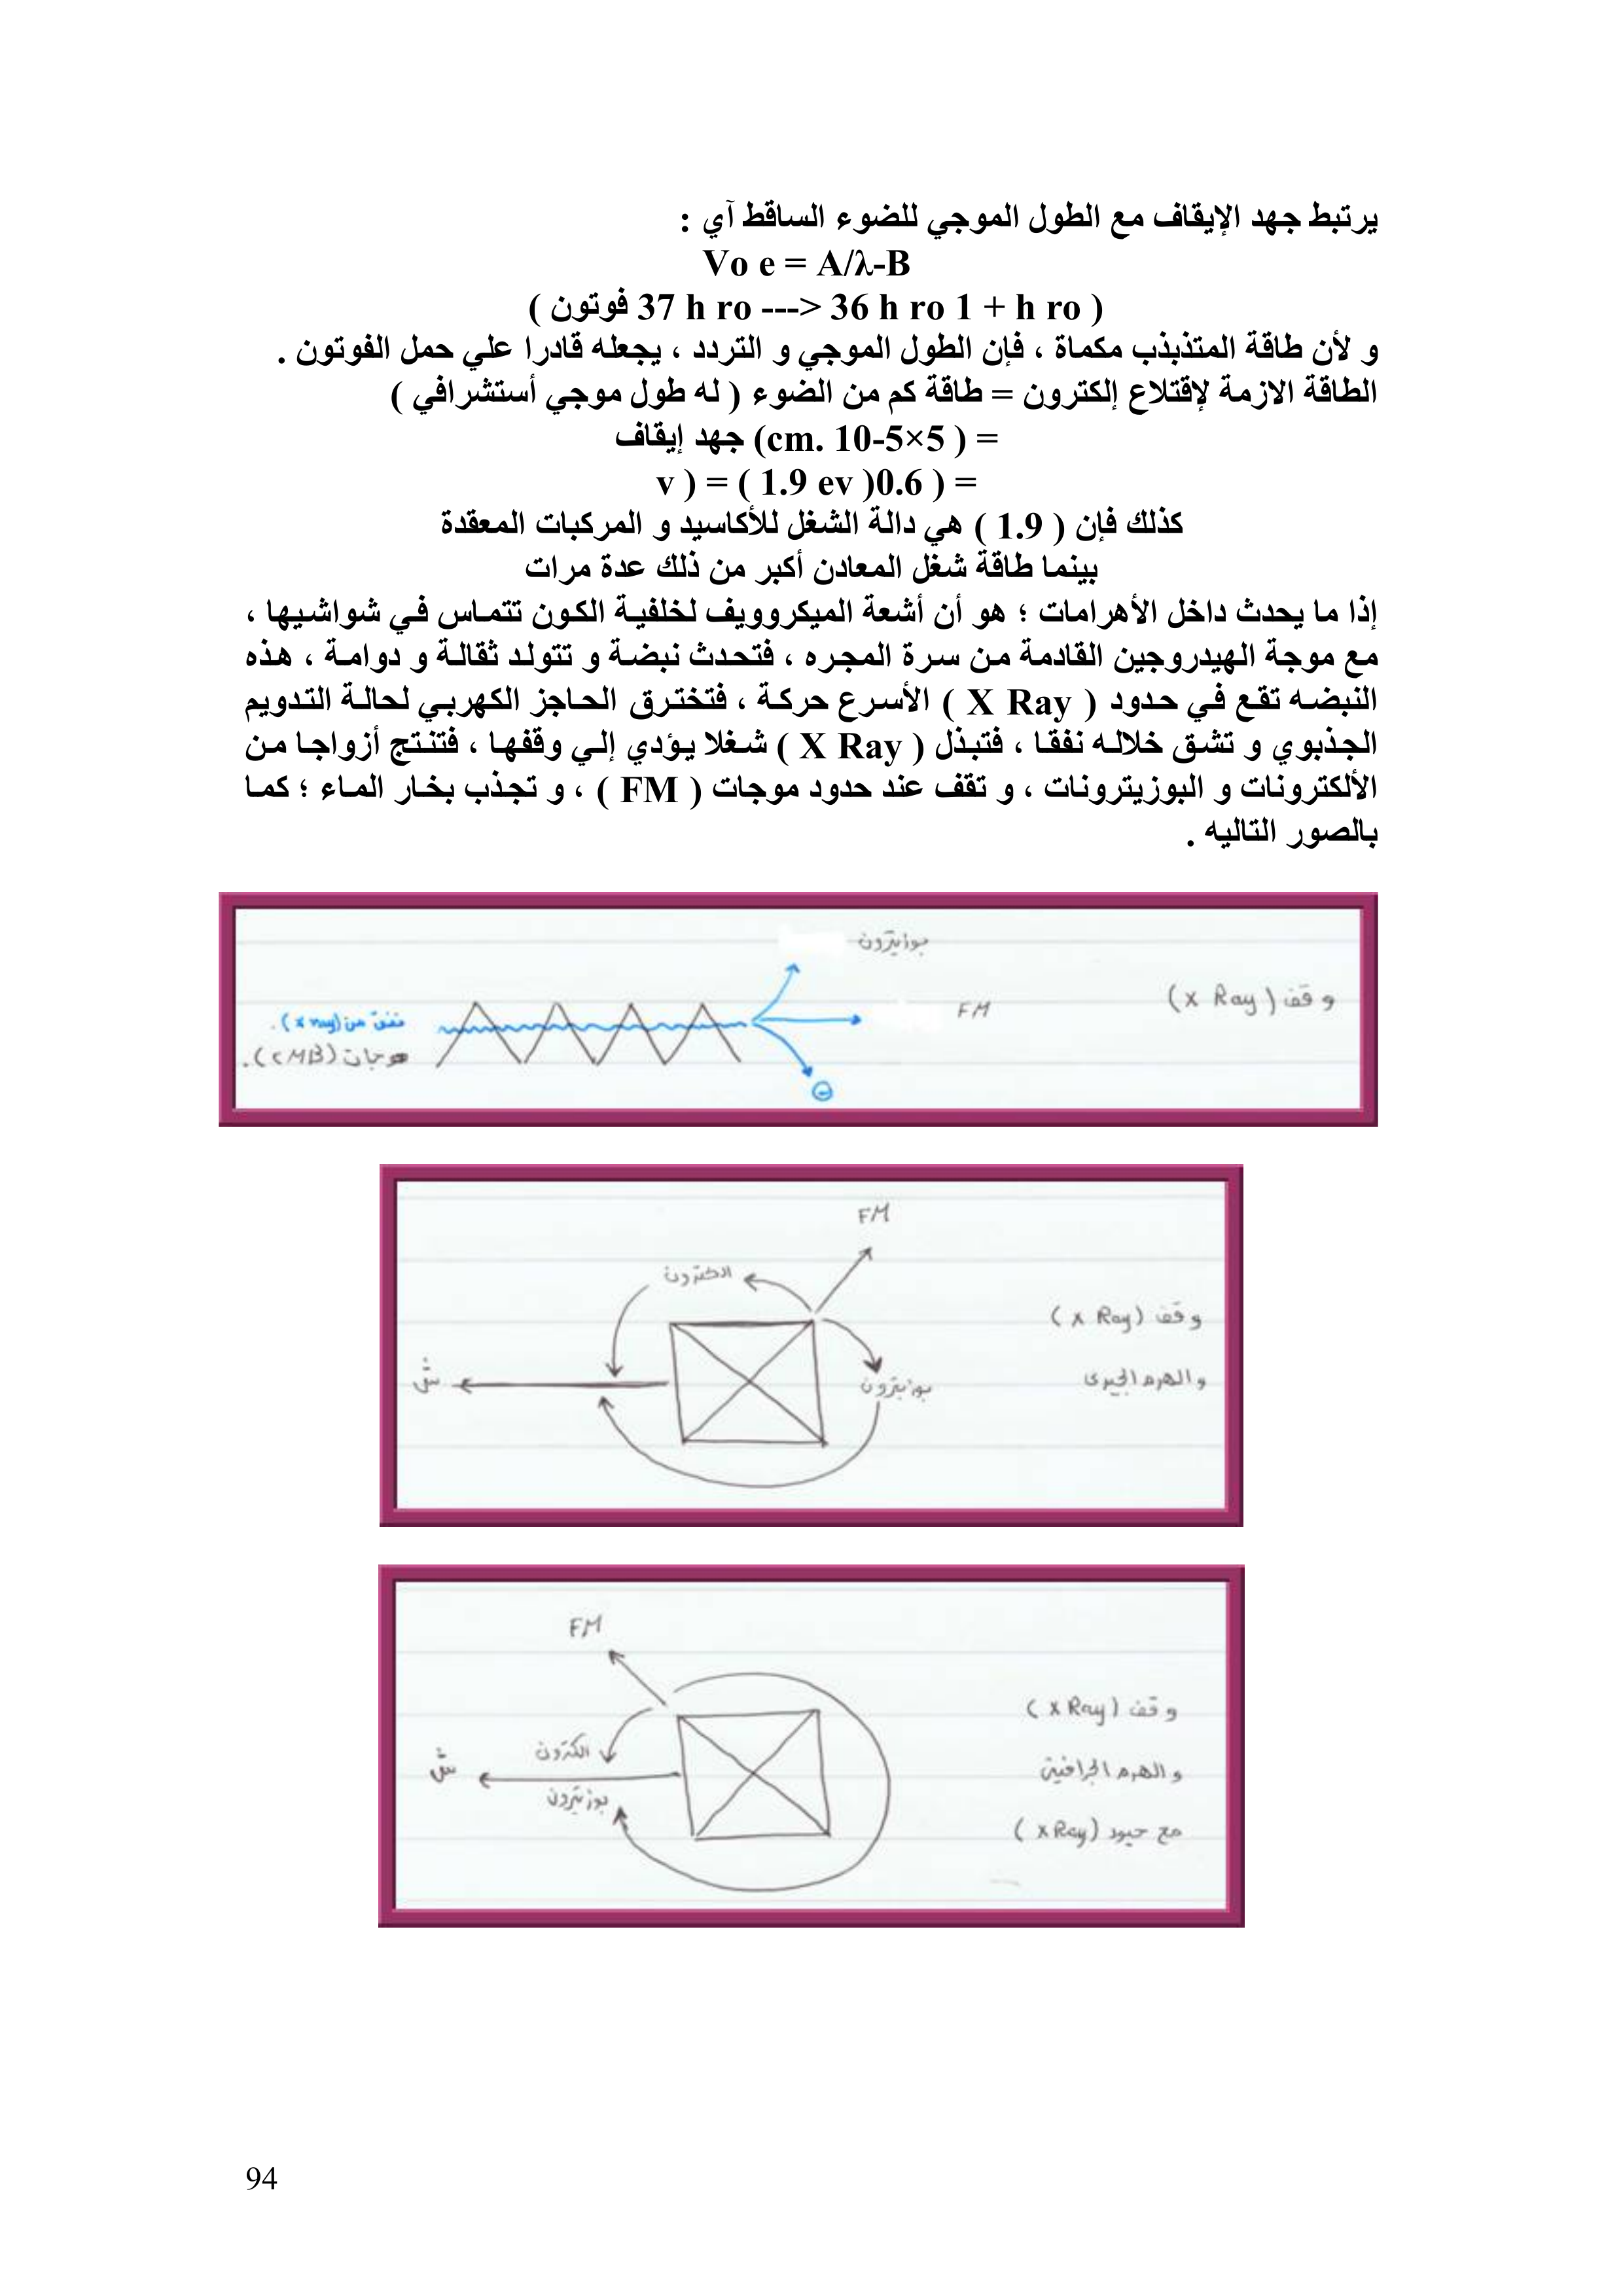 يرتبط جهد الإيقاف مع الطول الموجي للضوء الساقط آي :
Vo e = A/λ-B
( 37 h ro ---> 36 h ro 1 + h ro فوتون )
و لأن طاقة المتذبذب مكماة ، فإن الطول الموجي و التردد ، يجعله قادرا علي حمل الفوتون .
الطاقة الازمة لإقتلاع إلكترون = طاقة كم من الضوء ( له طول موجي أستشرافي )
= ( 5×5-10 .cm) جهد إيقاف
= ( 0.6( v ) = ( 1.9 ev
كذلك فإن ( 1.9 ) هي دالة الشغل للأكاسيد و المركبات المعقدة
بينما طاقة شغل المعادن أكبر من ذلك عدة مرات
إذا ما يحدث داخل الأهرامات ؛ هو أن أشعة الميكروويف لخلفية الكون تتماس في شواشيها ،
مع موجة الهيدروجين القادمة من سرة المجره ، فتحدث نبضة و تتولد ثقالة و دوامة ، هذه
النبضه تقع في حدود ( X Ray ) الأسرع حركة ، فتخترق الحاجز الكهربي لحالة التدويم
الجذبوي و تشق خلاله نفقا ، فتبذل ( X Ray ) شغلا يؤدي إلي وقفها ، فتنتج أزواجا من
الألكترونات و البوزيترونات ، و تقف عند حدود موجات ( FM ) ، و تجذب بخار الماء ؛ كما
بالصور التاليه .
بوزيترون
وقف (x Ray)
FM
نفق من (x ray).
موجات (CMB).
FM
الكترون
وقف (x Ray)
و الهرم الجيرى
بوزيترون
ش
FM
وقف (x Ray)
الكترون
و الهرم الجرافيتى
ش
بوزيترون
مع حيود (x Ray)
94